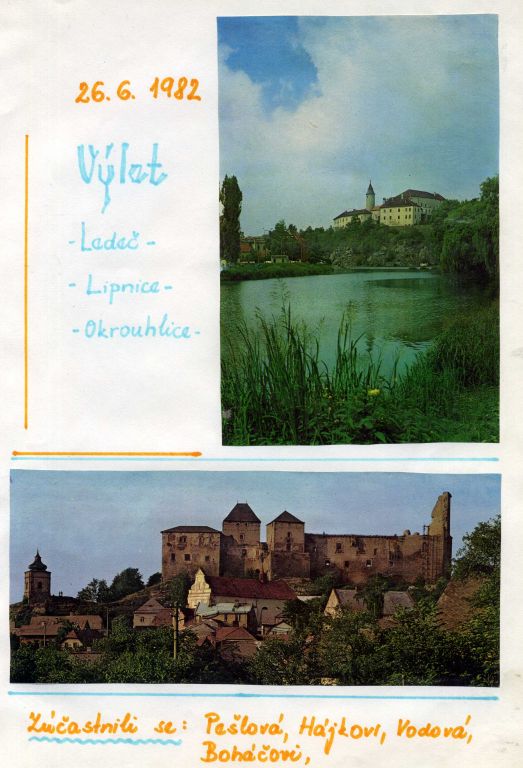 26. 6. 1982
Výlet
- Ledeč -
- Lipnice -
- Okrouhlice -
Zúčastnili se: Pešlová, Hájkovi, Vodová,
Boháčovi,